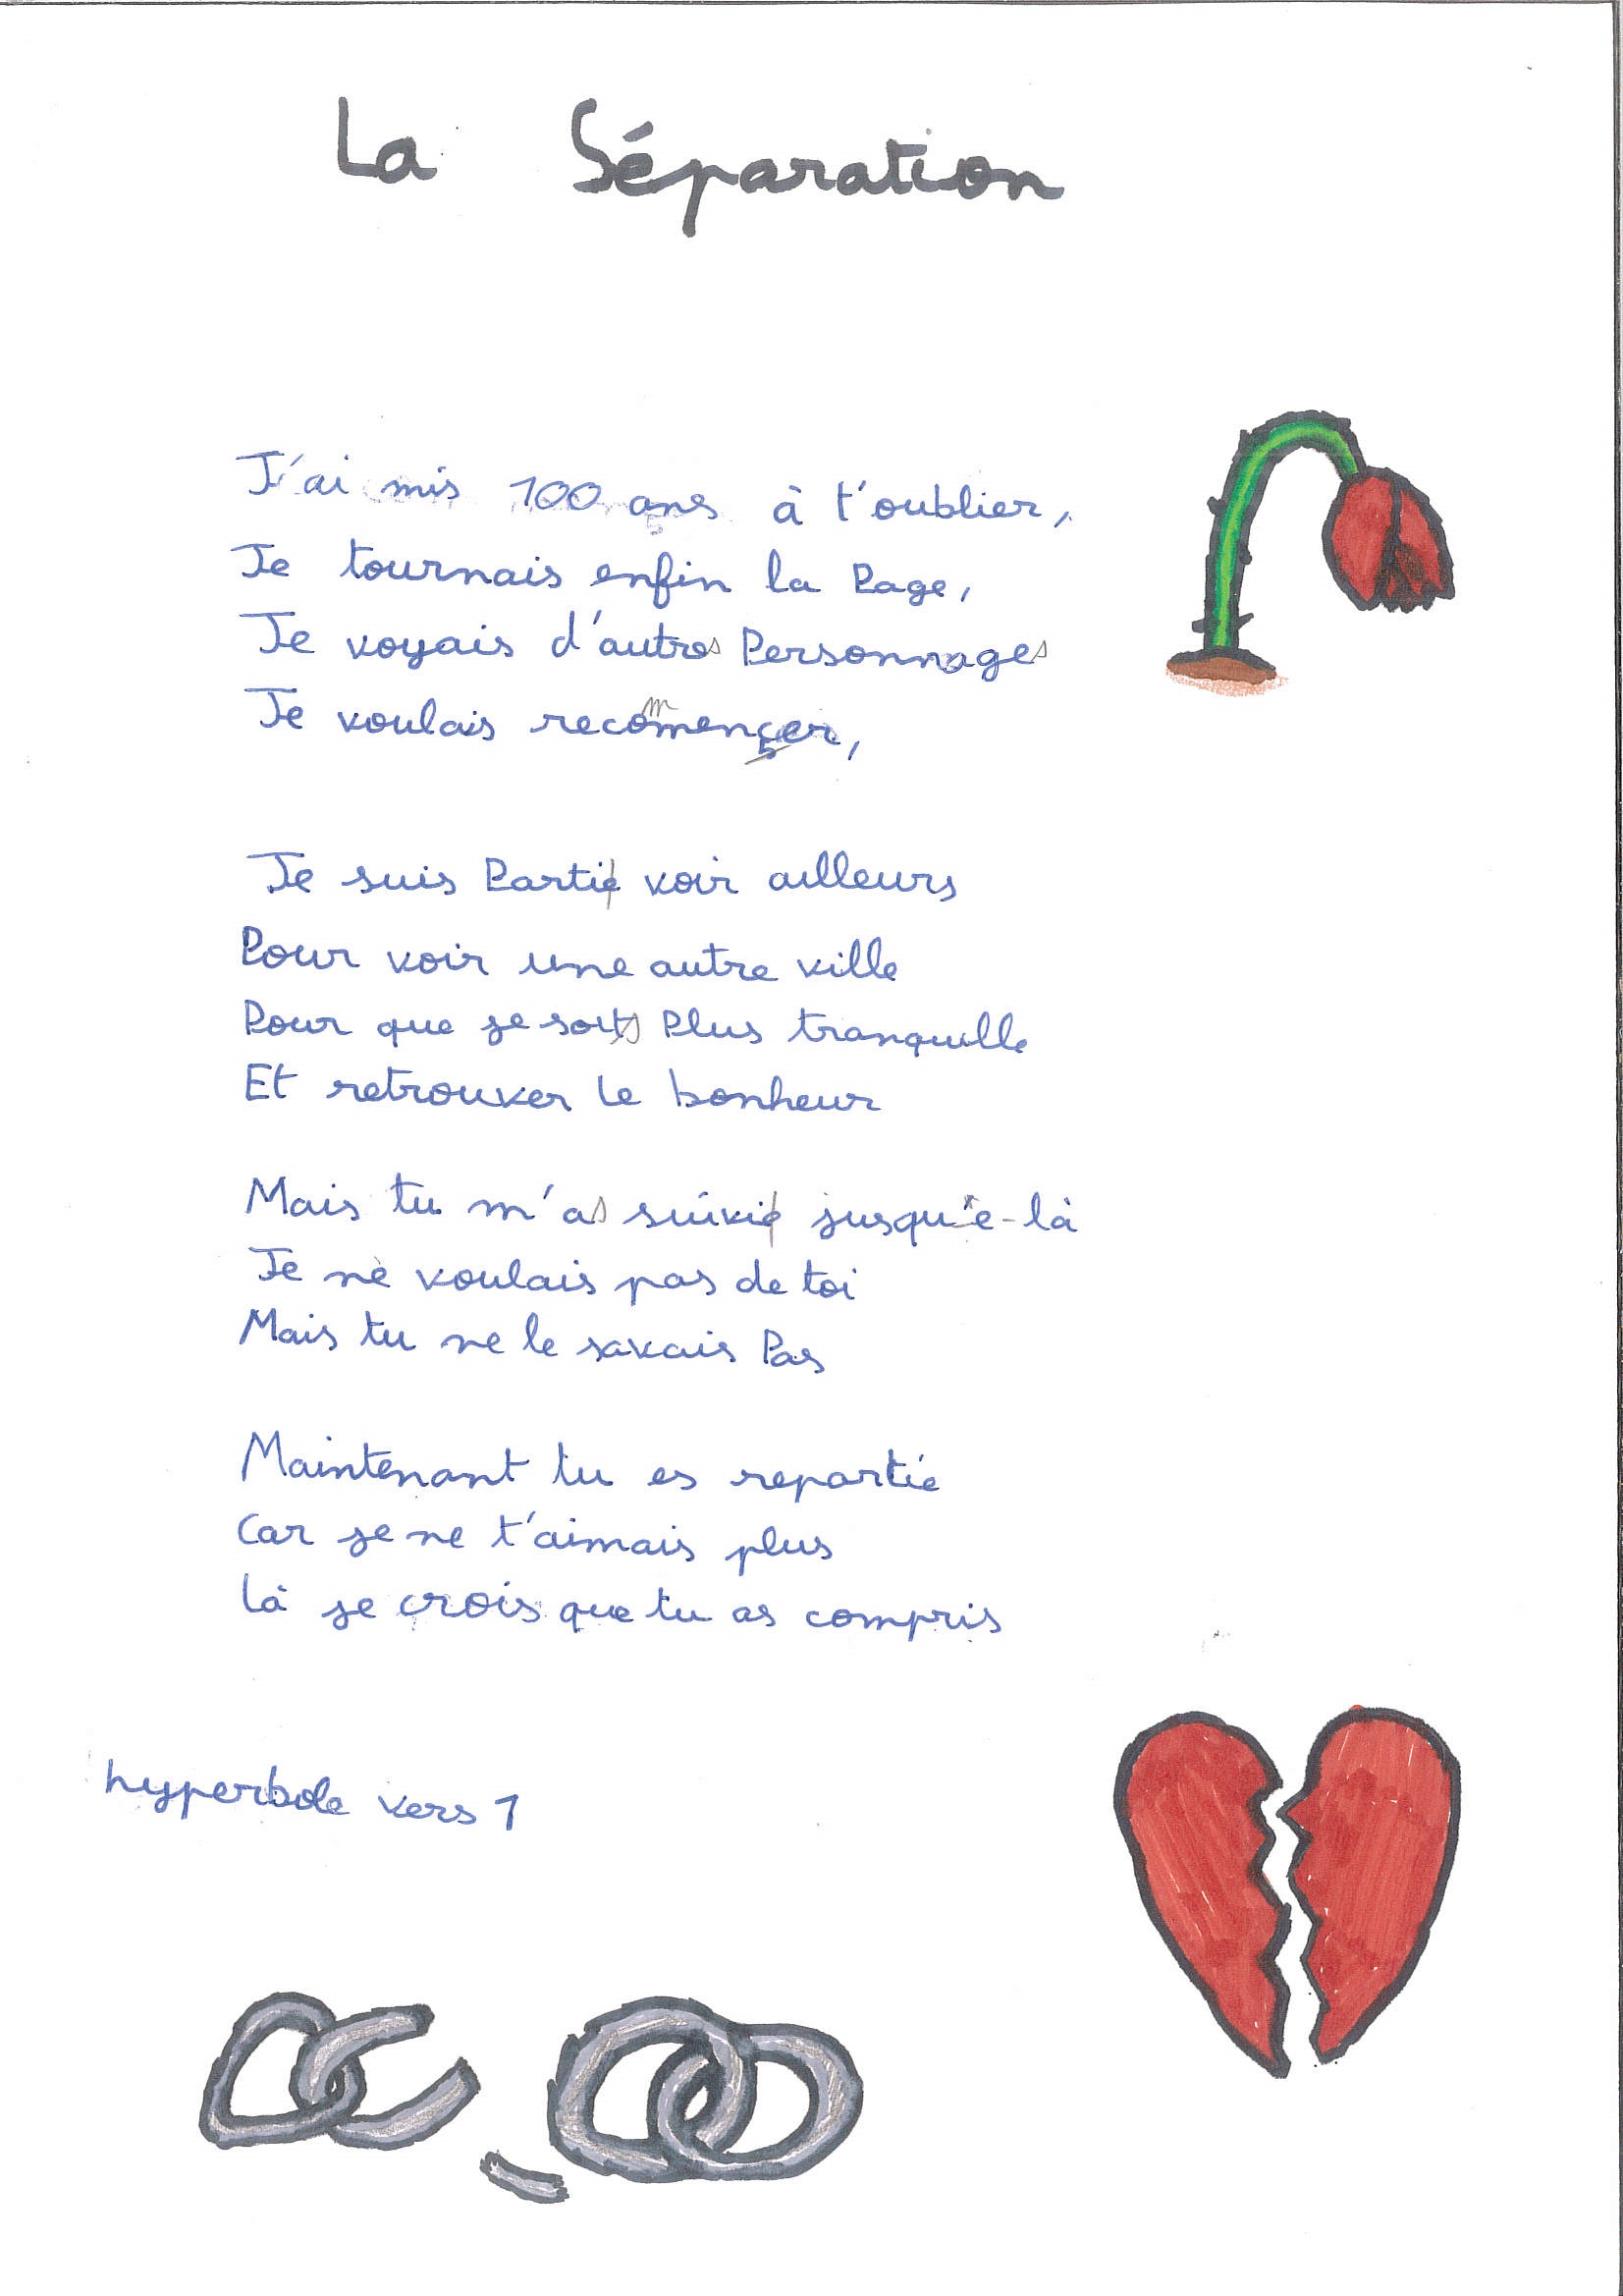 La Séparation
J'ai mis 100 ans à t'oublier,
Je tournais enfin la Page,
Je voyais d'autres Personnages
Je voulais recommencer,
Je suis Parti voir ailleurs
Pour voir une autre ville
Pour que je sois Plus tranquille
Et retrouver le bonheur
Mais tu m'as suivi jusqu'e-là
Je ne voulais pas de toi
Mais tu ne le savais Pas
Maintenant tu es repartie
Car je ne t'aimais plus
Là je crois que tu as compris
hyperbole vers 1